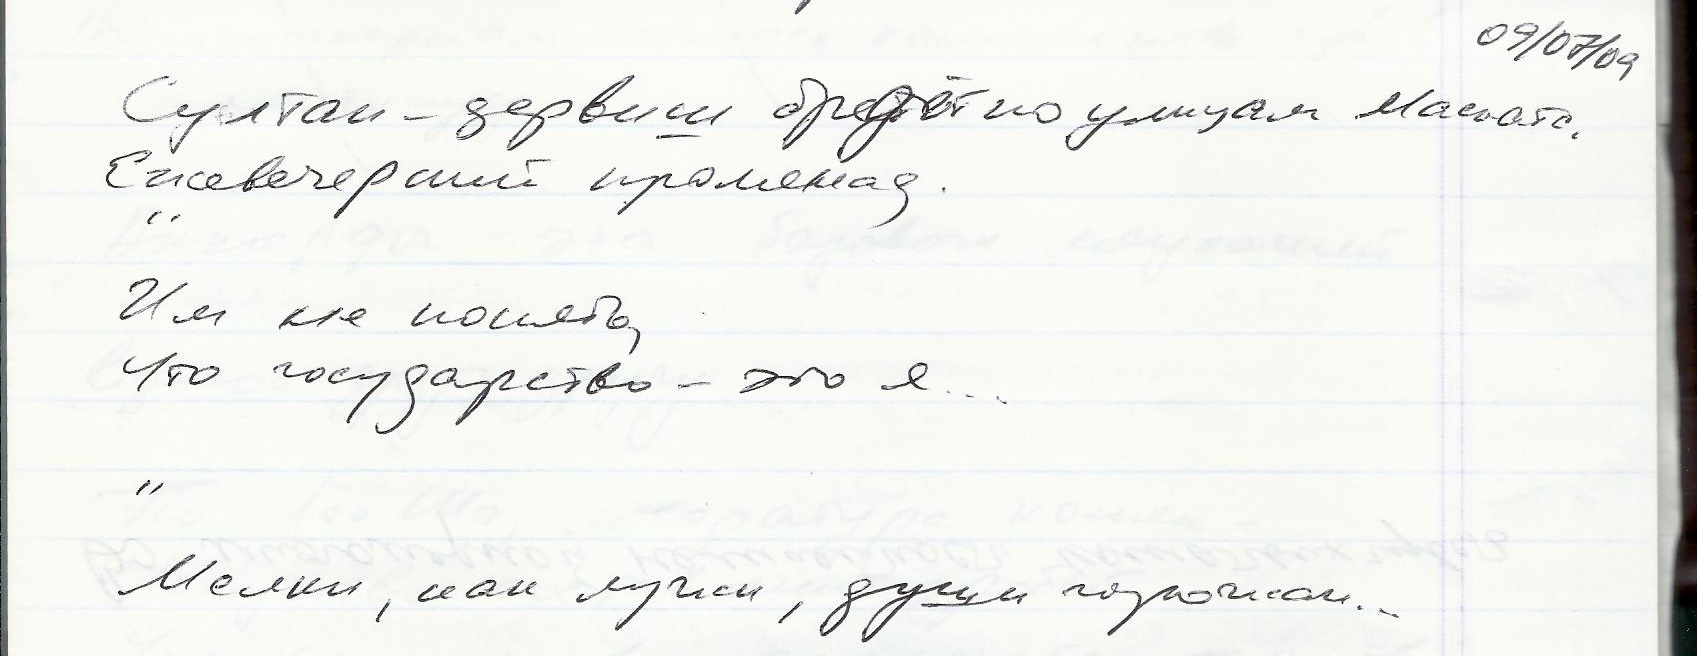 09/07/09
Султан - дервиш бредёт по улицам Маската.
Ежевечерний променад.
"
Им не понять,
Что государство - это я...
"
Мелки, как лужи, души горожан...